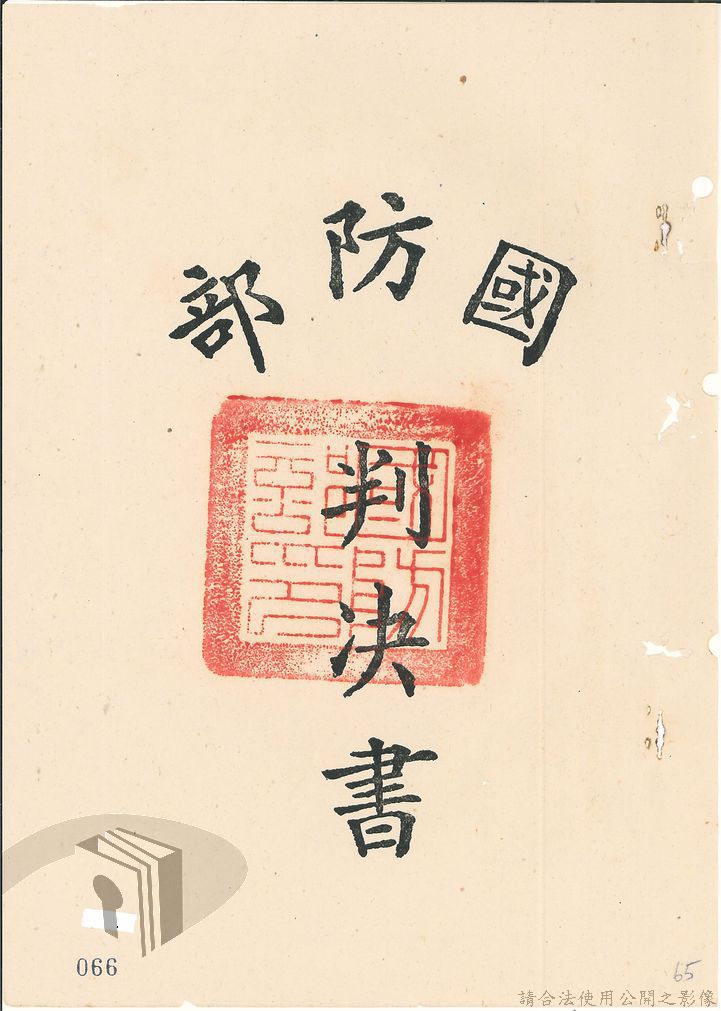 國防部
判決書
066
65
請合法使用公開之影像